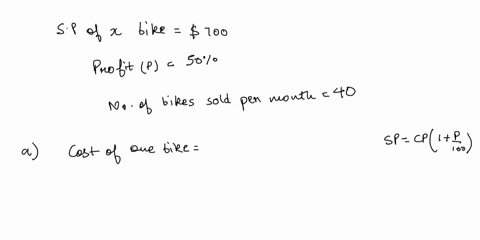 S.P of x bike = $700
Profit (P) = 50%
No. of bikes sold per month = 40
a) Cost of one bike =
SP = CP(1+P/100)